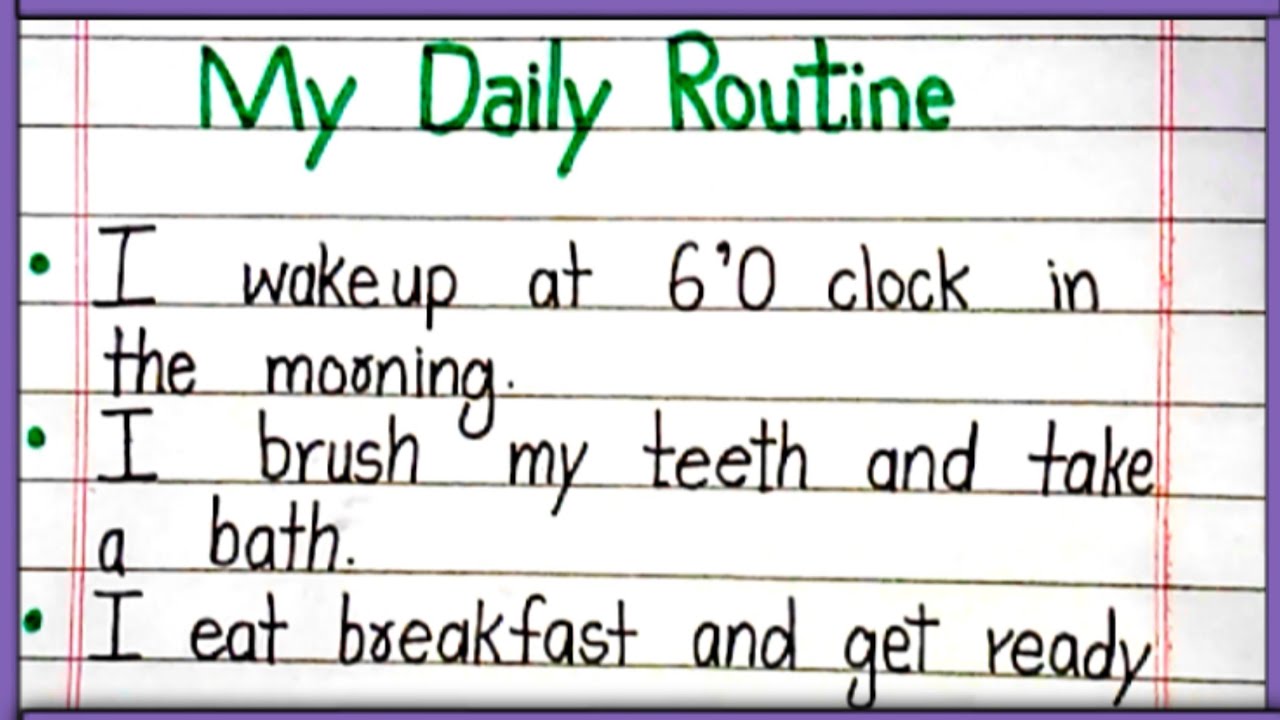 My Daily Routine
• I wakeup at 6'0 clock in
the morning.
• I brush my teeth and take
a bath.
• I eat breakfast and get ready